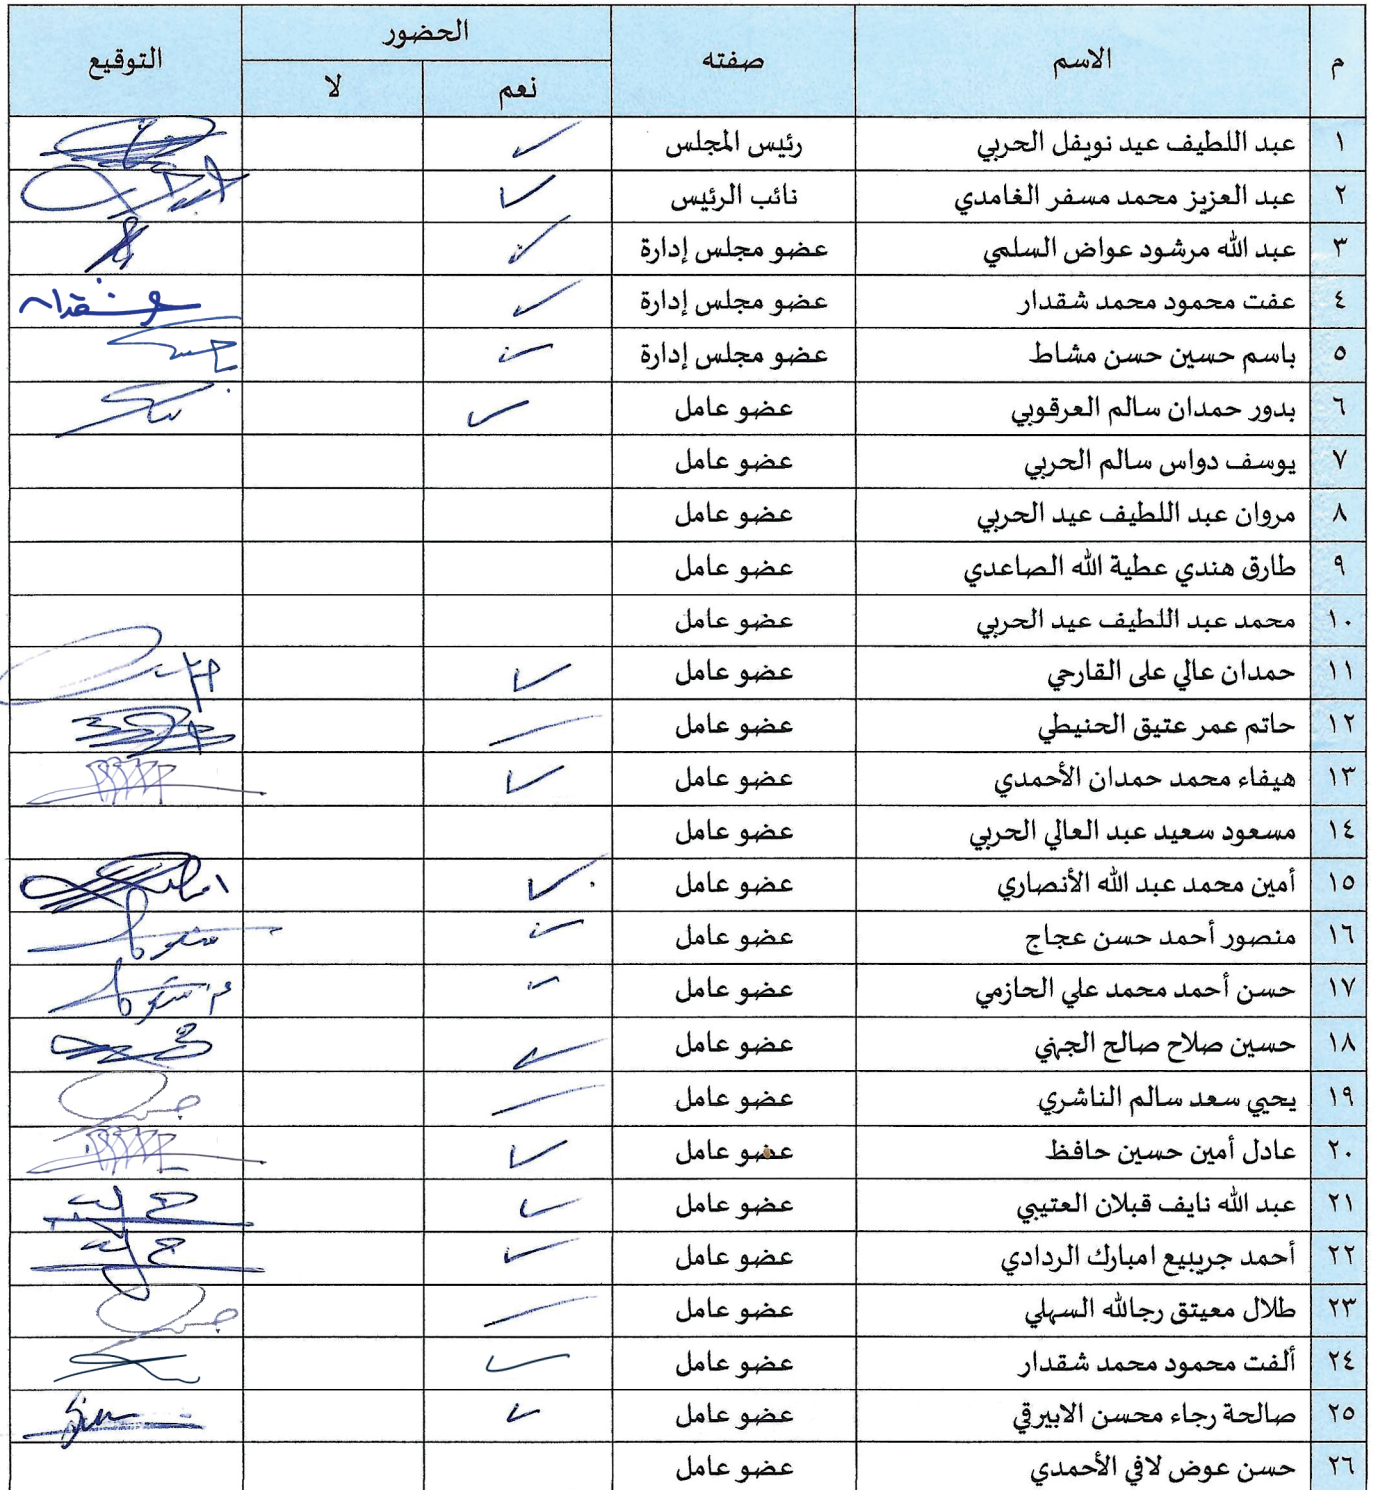 م الاسم صفته الحضور التوقيع
نعم لا
١ عبد اللطيف عيد نويفل الحربي رئيس المجلس
٢ عبد العزيز محمد مسفر الغامدي نائب الرئيس
٣ عبد الله مرشود عواض السلمي عضو مجلس إدارة
٤ عفت محمود محمد شقدار عضو مجلس إدارة
٥ باسم حسين حسن مشاط عضو مجلس إدارة
٦ بدور حمدان سالم العرقوبي عضو عامل
٧ يوسف دواس سالم الحربي عضو عامل
٨ مروان عبد اللطيف عيد الحربي عضو عامل
٩ طارق هندي عطية الله الصاعدي عضو عامل
١٠ محمد عبد اللطيف عيد الحربي عضو عامل
١١ حمدان عالي على القارحي عضو عامل
١٢ حاتم عمر عتيق الحنيطي عضو عامل
١٣ هيفاء محمد حمدان الأحمدي عضو عامل
١٤ مسعود سعيد عبد العالي الحربي عضو عامل
١٥ أمين محمد عبد الله الأنصاري عضو عامل
١٦ منصور أحمد حسن عجاج عضو عامل
١٧ حسن أحمد محمد علي الحازمي عضو عامل
١٨ حسين صلاح صالح الجهني عضو عامل
١٩ يحيي سعد سالم الناشري عضو عامل
٢٠ عادل أمين حسين حافظ عضو عامل
٢١ عبد الله نايف قبلان العتيبي عضو عامل
٢٢ أحمد جريبيع امبارك الردادي عضو عامل
٢٣ طلال معيتق رجالله السهلي عضو عامل
٢٤ ألفت محمود محمد شقدار عضو عامل
٢٥ صالحة رجاء محسن الابيرقي عضو عامل
٢٦ حسن عوض لافي الأحمدي عضو عامل